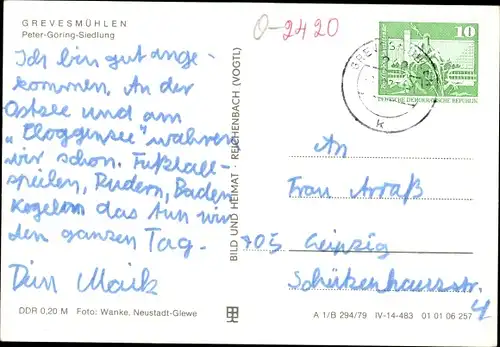 GREVESMÜHLEN
Peter-Göring-Siedlung
0-2420
10
DEUTSCHE DEMOKRATISCHE REPUBLIK
k
Ich bin gut ange-
kommen. An der
Ostsee und am
"Ploggensee" wahren
wir schon. Fußball-
spielen, Rudern, Baden
Kegeln das tun wir
den ganzen Tag.
Dein Maik
BILD UND HEIMAT · REICHENBACH (VOGTL)
An
Frau Arraß
705 Leipzig
Schützenhausstr.
4
DDR 0,20 M Foto: Wanke, Neustadt-Glewe
A 1/B 294/79 IV-14-483 01 01 06 257